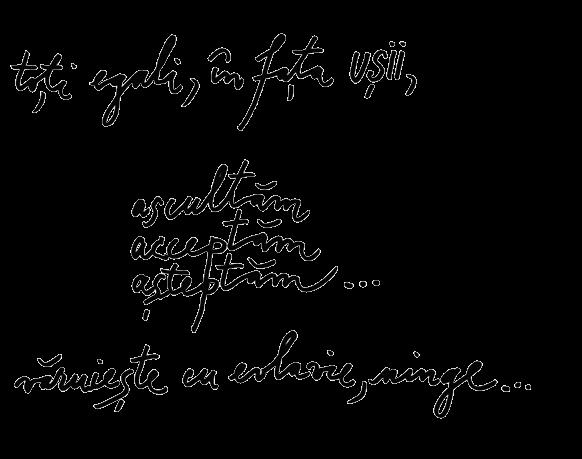 toți egali, în fața ușii,
ascultăm
acceptăm
așteptăm...
cu evlavie, ninge...